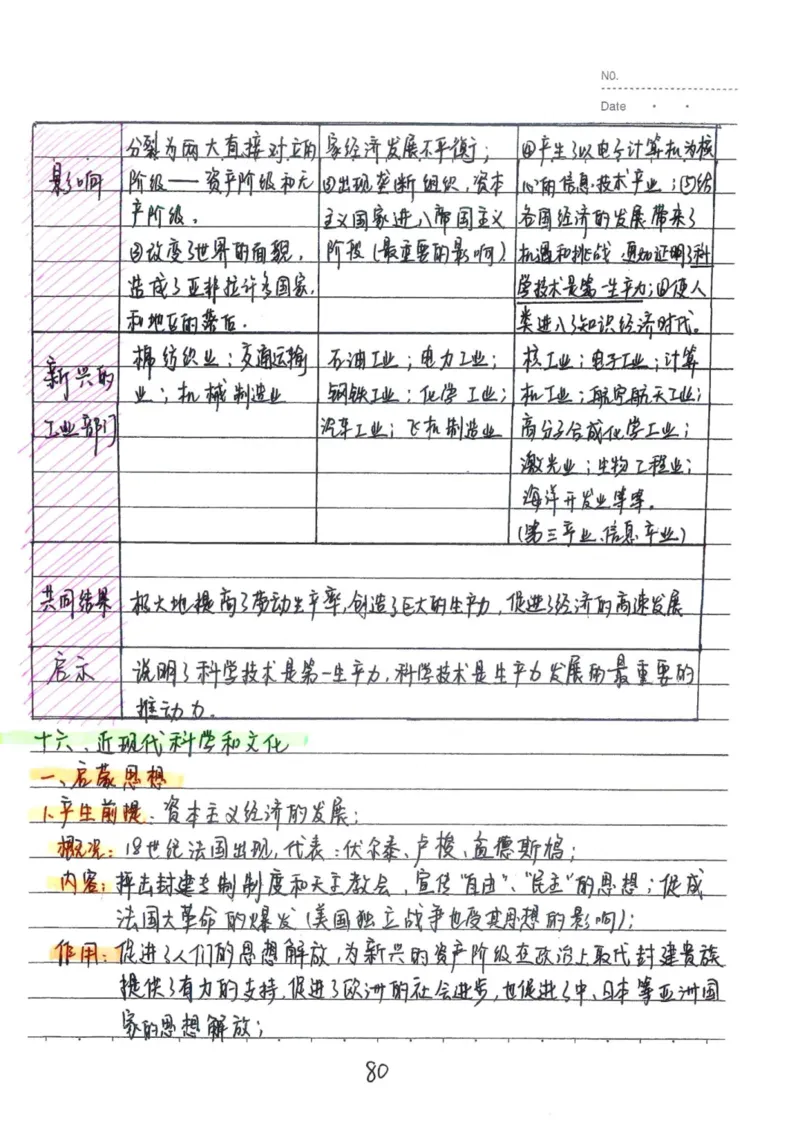 NO.
Date
影响
分裂为两大直接对立的
阶级——资产阶级和无
产阶级。
②改变了世界的面貌，
造成了亚非拉许多国家
和地区的落后.
家经济发展不平衡；
②出现垄断组织，资本
主义国家进入帝国主义
阶段（最重要的影响）
④产生了以电子计算机为核
心的信息技术产业；⑤给
各国经济的发展带来了
机遇和挑战 更加证明了科
学技术是第一生产力；⑥使人
类进入了知识经济时代。
新兴的
工业部门
棉纺织业；交通运输
业；机械制造业
石油工业；电力工业；
钢铁工业；化学工业；
汽车工业；飞机制造业
核工业；电子工业；计算
机工业；航空航天工业；
高分子合成化学工业；
激光业；生物工程业；
海洋开发业等等。
(第三产业、信息产业)
共同结果
极大地提高了劳动生产率，创造了巨大的生产力，促进了经济的高速发展
启示
说明了科学技术是第一生产力，科学技术是生产力发展的最重要的
推动力.
十六、近现代科学和文化
一、启蒙思想
1、产生前提：资本主义经济的发展；
概况：18世纪法国出现，代表：伏尔泰、卢梭、孟德斯鸠；
内容：抨击封建专制制度和天主教会，宣传"自由"、"民主"的思想；促成
法国大革命的爆发（美国独立战争也受其思想的影响）；
作用：促进了人们的思想解放，为新兴的资产阶级在政治上取代封建贵族
提供了有力的支持，促进了欧洲的社会进步，也促进了中、日本等亚洲国
家的思想解放；
80